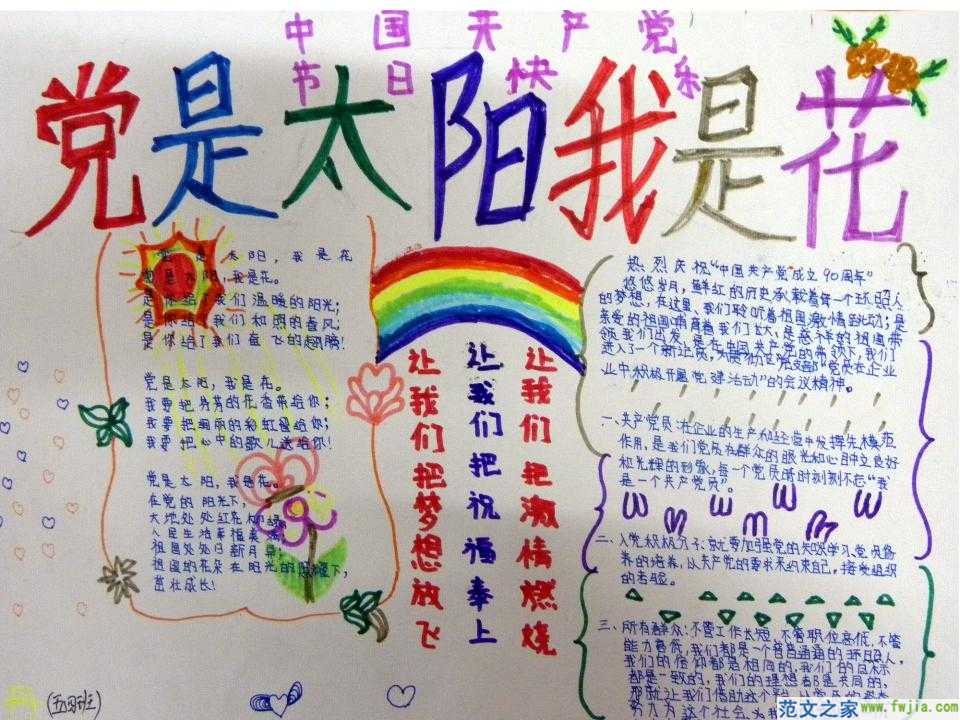 中国共产党
节日快乐
党是太阳我是花
党是太阳，我是花
党是太阳，我是花。
是你给了我们温暖的阳光；
是你给了我们和煦的春风；
是你给了我们奋飞的翅膀！
党是太阳，我是花。
我要把芬芳的花香带给你；
我要把绚丽的彩虹留给你；
我要把心中的歌儿送给你！
党是太阳，我是花。
在党的阳光下，
大地处处红花
人民生活幸福美
祖国处处日新月异
祖国的花朵在阳光的照耀下，
茁壮成长！
让我们把梦想放飞
让我们把祝福奉上
让我们把激情燃烧
热烈庆祝"中国共产党成立90周年"
悠悠岁月，鲜红的历史承载着每一个环照人
的梦想，在这里，我们聆听着祖国激情的脉动；是
亲爱的祖国哺育着我们长大，是慈祥的祖国带
领我们出发，是在中国共产党的带领下，我们
进入了一个新纪元，党支部"党员在企业
业中积极开展党建活动"的会议精神。
一、共产党员：在企业的生产和经营中发挥先模范
作用，是我们党员在群众的眼光和心目中立良好
和光辉的形象，每一个党员时时刻刻不忘"我
是一个共产党员"。
二、入党积极分子：就要加强党的知识学习党员修
养的培养，以共产党的要求来约束自己，接受组织
的考验。
三、所有群众：不管工作长短，不管职位高低，不管
能力高低，我们都是一个普普通通的环照人，
我们的信仰都是相同的，我们的目标
都是一致的，我们的理想都是共同的，
那就让我们借助这个
努力为这个社会
(五.3班)
范文之家 www.fwjia.com